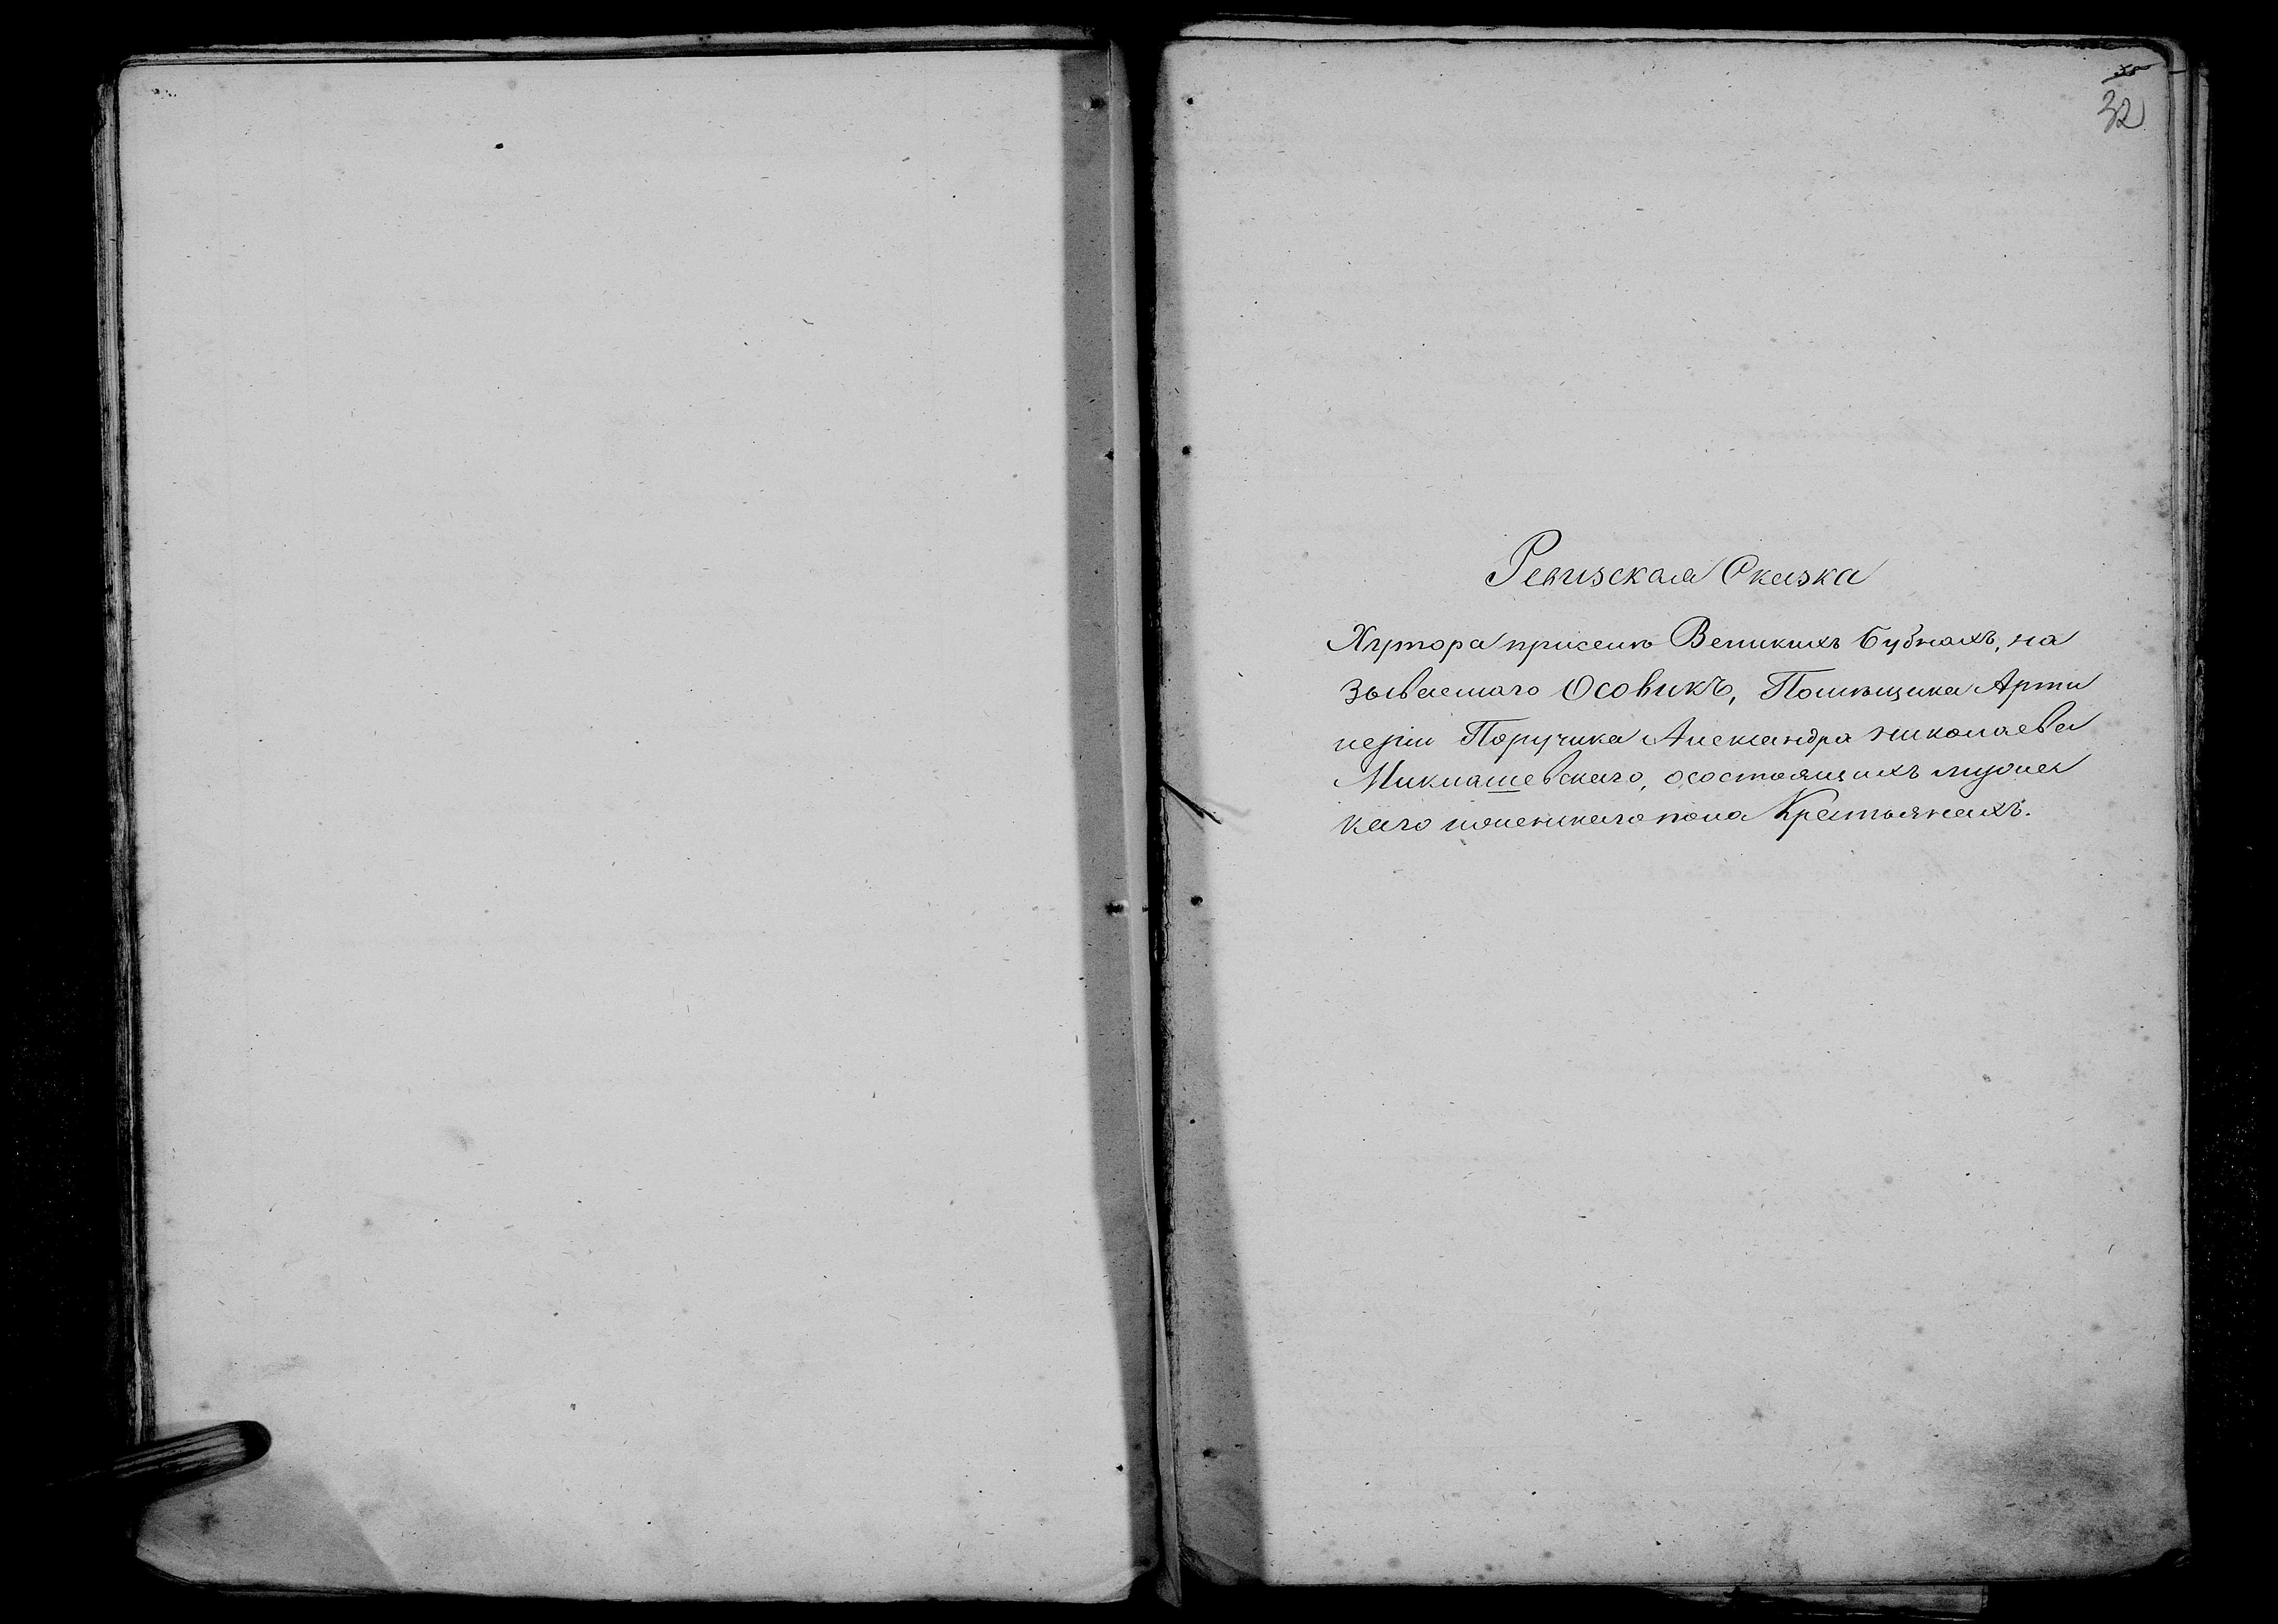 32
Ревизская Сказка
Хутора при селе Великихъ Бубнахъ, на
зываемаго Осовикъ, Помещика Арти
лерии Поручика Александра Николаева
Миклашевскаго, осостоящихъ мужес
каго иженскаго пола Крестьянахъ.